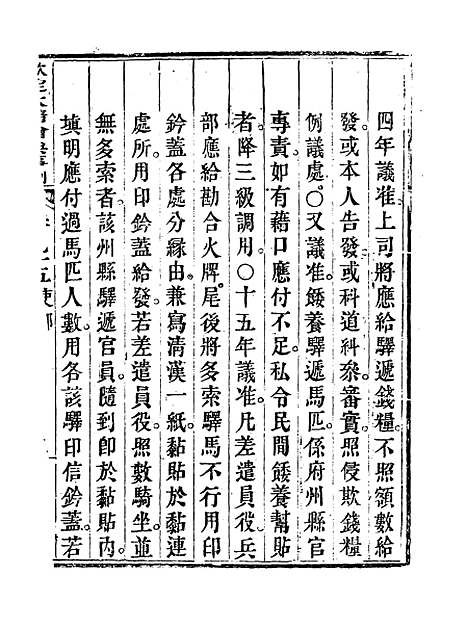 四年議准上司將應給驛遞錢糧不照額數給
發或本人告發或科道糾參審實照侵欺錢糧
例議處○又議准餧養驛遞馬匹係府州縣官
專責如有藉口應付不足私令民間餧養幫貼
者降三級調用○十五年議准凡差遣員役兵
部應給勘合火牌尾後將多索驛馬不行用印
鈐蓋各處分緣由兼寫清漢一紙黏貼於黏連
處所用印鈐蓋給發若差遣員役照數騎坐並
無多索者該州縣驛遞官員隨到卽於黏貼內
塡明應付過馬匹人數用各該驛印信鈐蓋若